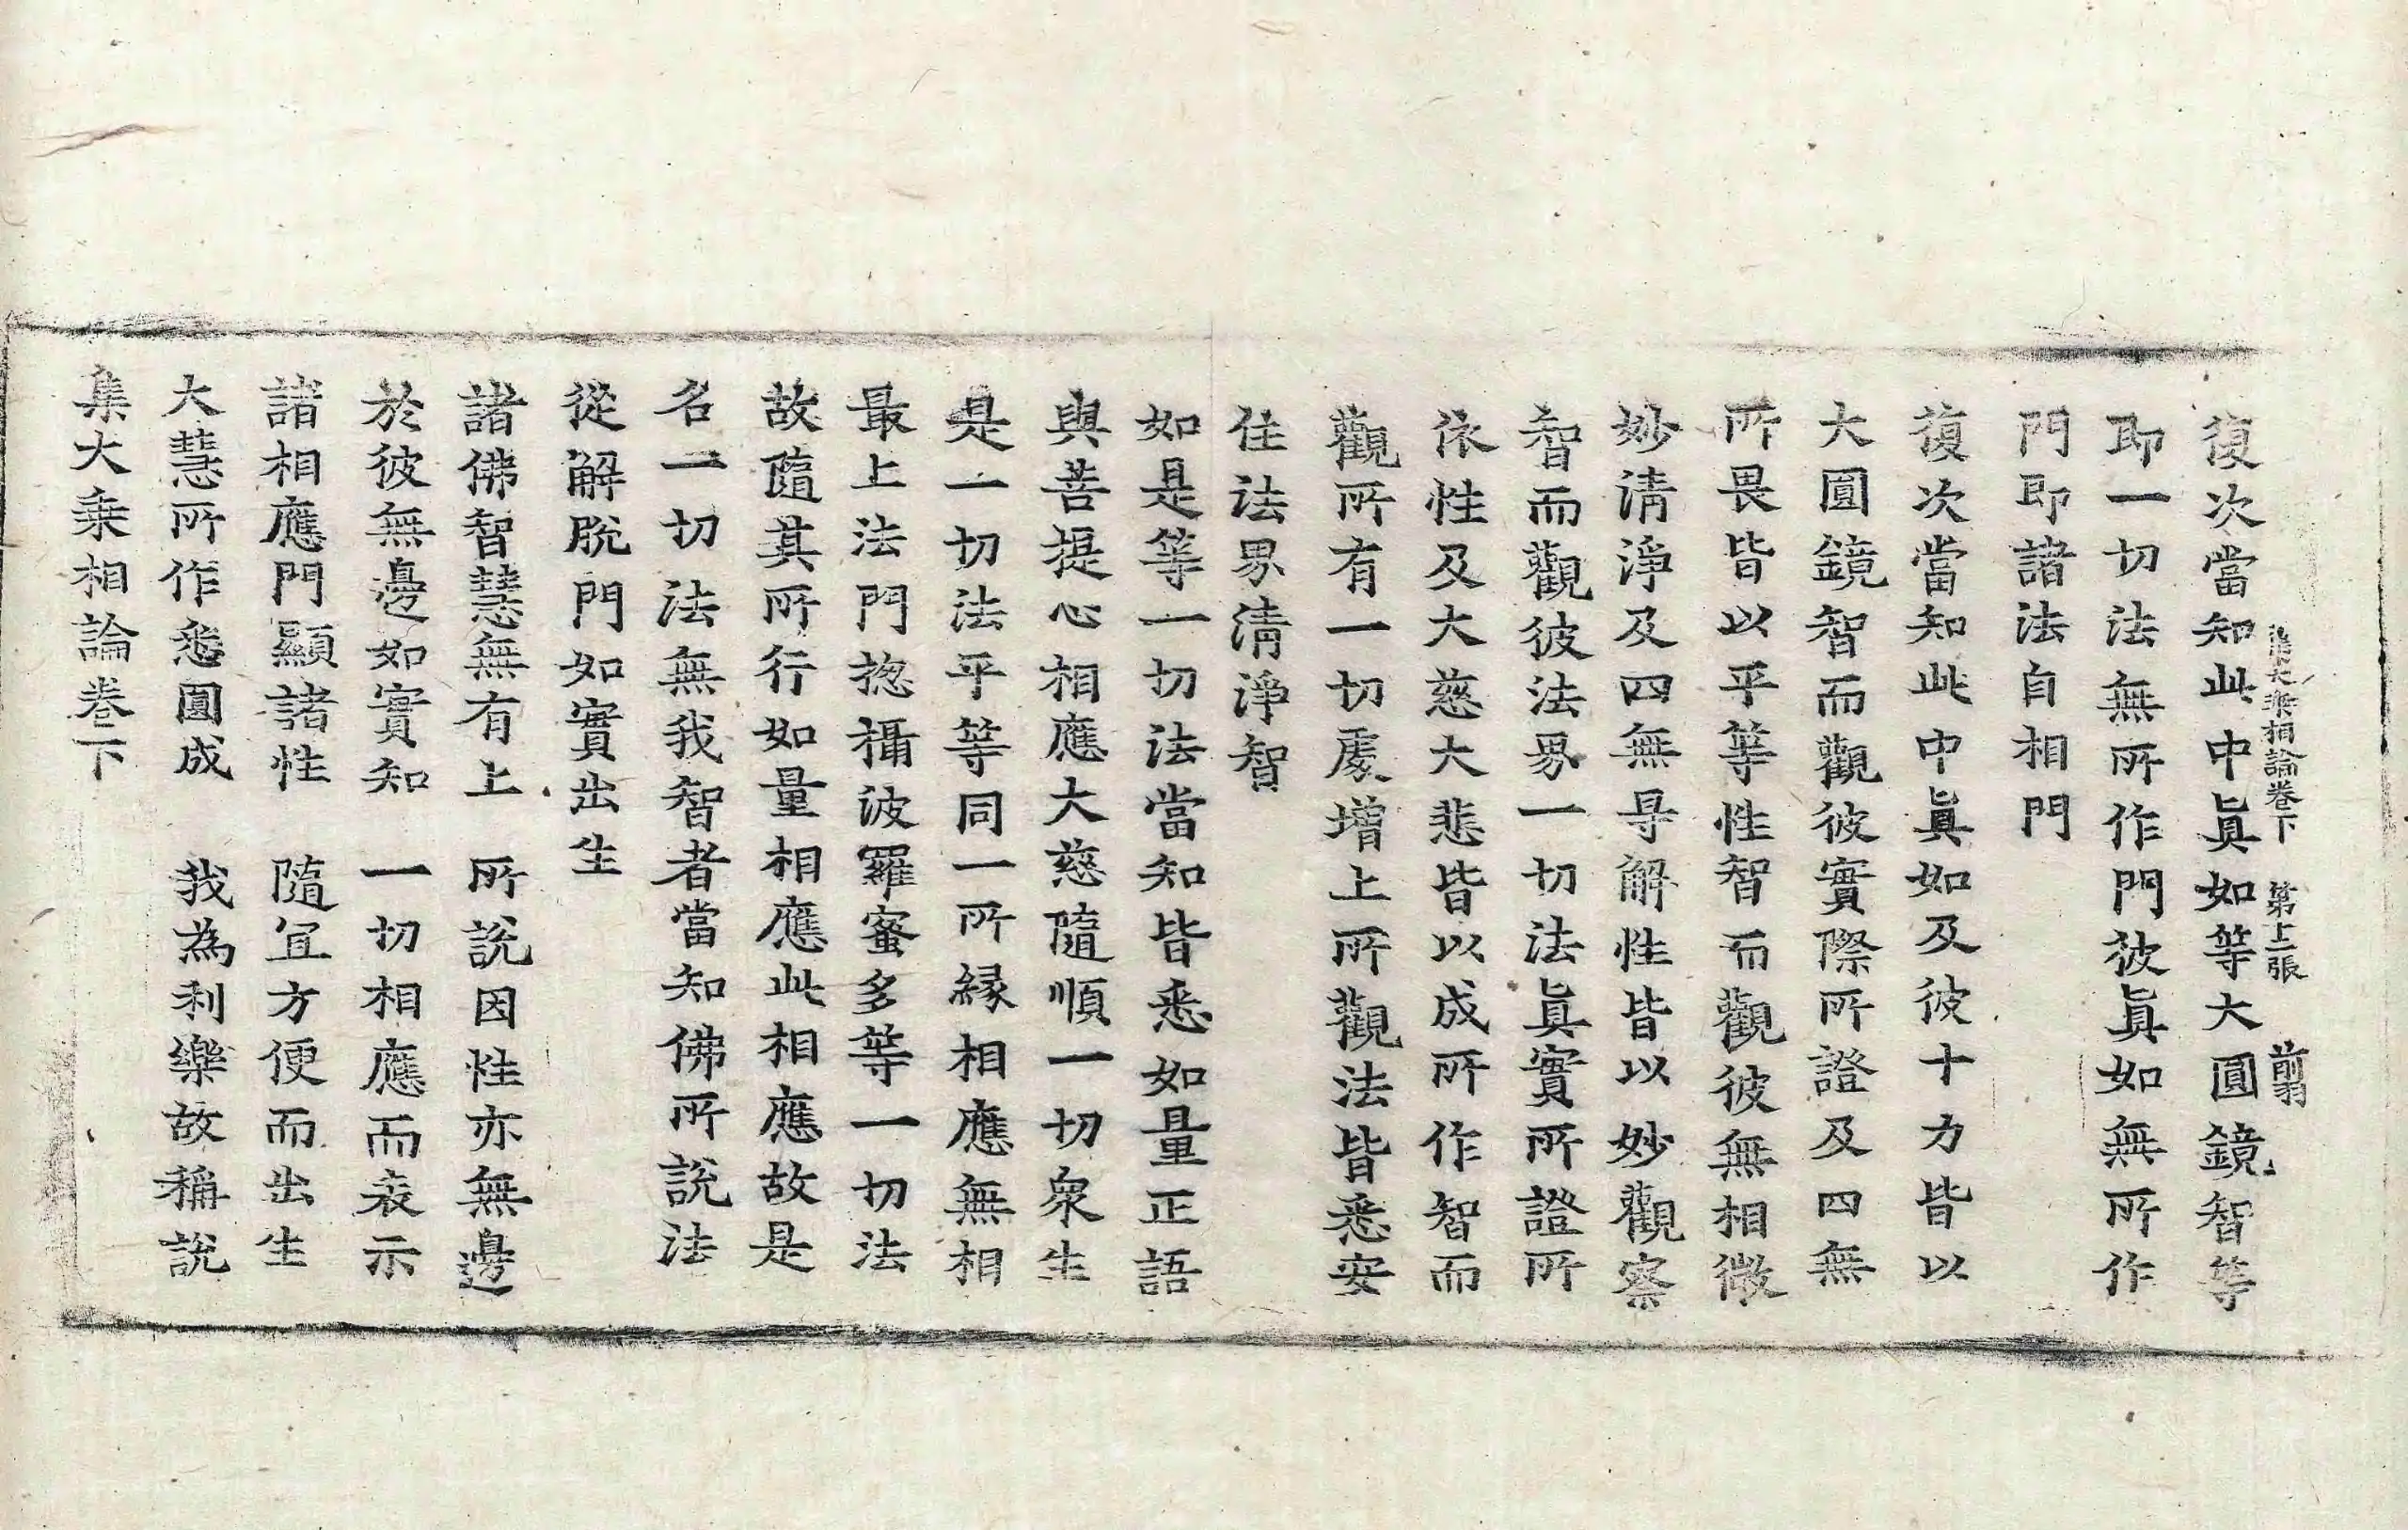 集大乗相論卷下　第十二張　前翦
復次當知此中眞如等大圓鏡智等
即一切法無所作門彼眞如無所作
門即諸法自相門
復次當知此中眞如及彼十力皆以
大圓鏡智而觀彼實際所證及四無
所畏皆以平等性智而觀彼無相微
妙清淨及四無㝵解性皆以妙觀察
智而觀彼法界一切法眞實所證所
依性及大慈大悲皆以成所作智而
觀所有一切處增上所觀法皆悉安
住法界清淨智
如是等一切法當知皆悉如量正語
與菩提心相應大慈隨順一切衆生
是一切法平等同一所縁相應無相
最上法門揔攝波羅蜜多等一切法
故隨其所行如量相應此相應故是
名一切法無我智者當知佛所說法
從解脫門如實出生
諸佛智慧無有上　所說因性亦無邊
於彼無邊如實知　一切相應而表示
諸相應門顯諸性　隨冝方便而出生
大慧所作悉圓成　我為利樂故稱說
集大乗相論卷下